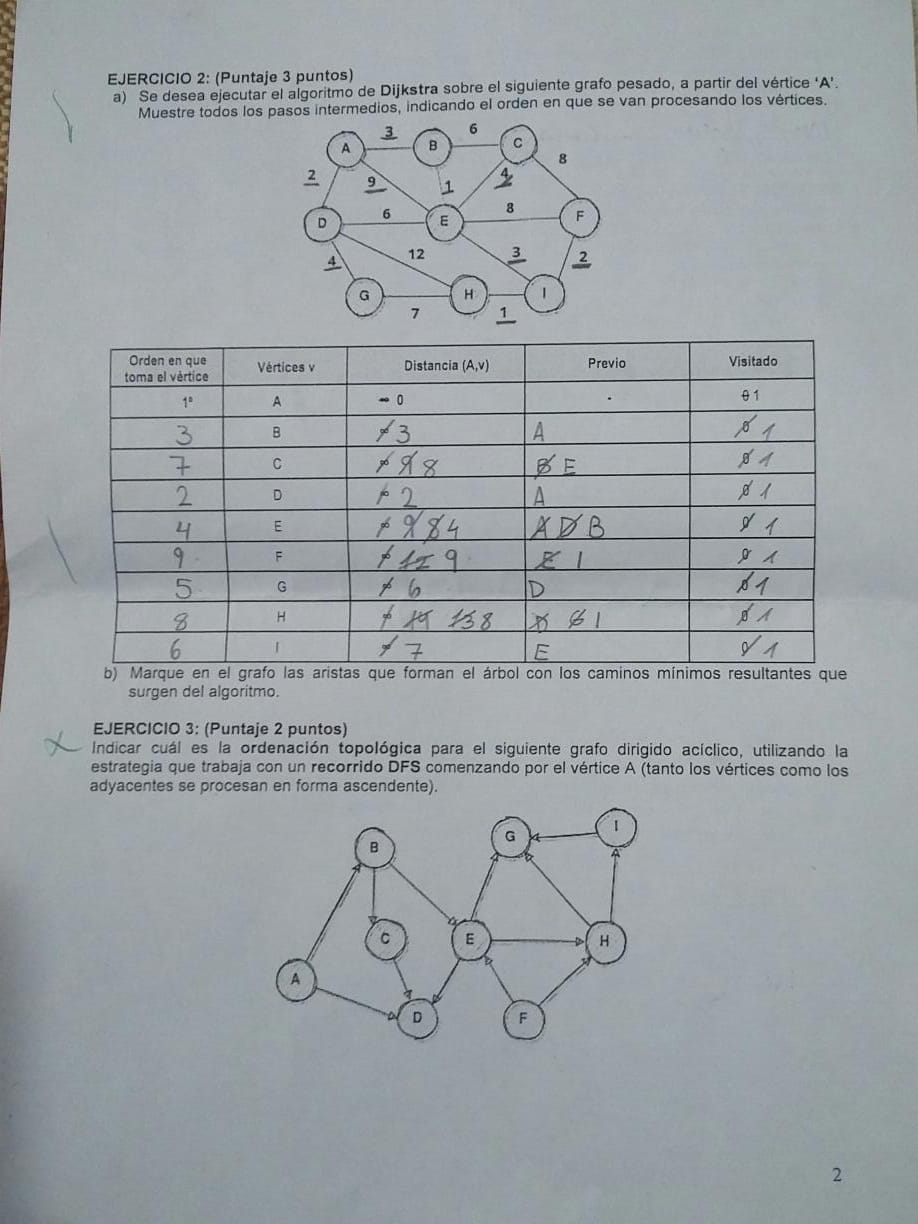 EJERCICIO 2: (Puntaje 3 puntos)
a) Se desea ejecutar el algoritmo de Dijkstra sobre el siguiente grafo pesado, a partir del vértice 'A'.
Muestre todos los pasos intermedios, indicando el orden en que se van procesando los vértices.
3 6
A B C 8
2 9 1 4
D 6 E 8 F
4 12 3 2
G H I
7 1
Orden en que toma el vértice Vértices v Distancia (A,v) Previo Visitado
1° A ∞ 0 - 0 1
3 B ∞ 3 A 0 1
7 C ∞ 9 8 B E 0 1
2 D ∞ 2 A 0 1
4 E ∞ 9 8 4 A D B 0 1
9 F ∞ 12 9 E I 0 1
5 G ∞ 6 D 0 1
8 H ∞ 14 13 8 D G I 0 1
6 I ∞ 7 E 0 1
b) Marque en el grafo las aristas que forman el árbol con los caminos mínimos resultantes que
surgen del algoritmo.
EJERCICIO 3: (Puntaje 2 puntos)
Indicar cuál es la ordenación topológica para el siguiente grafo dirigido acíclico, utilizando la
estrategia que trabaja con un recorrido DFS comenzando por el vértice A (tanto los vértices como los
adyacentes se procesan en forma ascendente).
B G I
C E H
A
D F
2